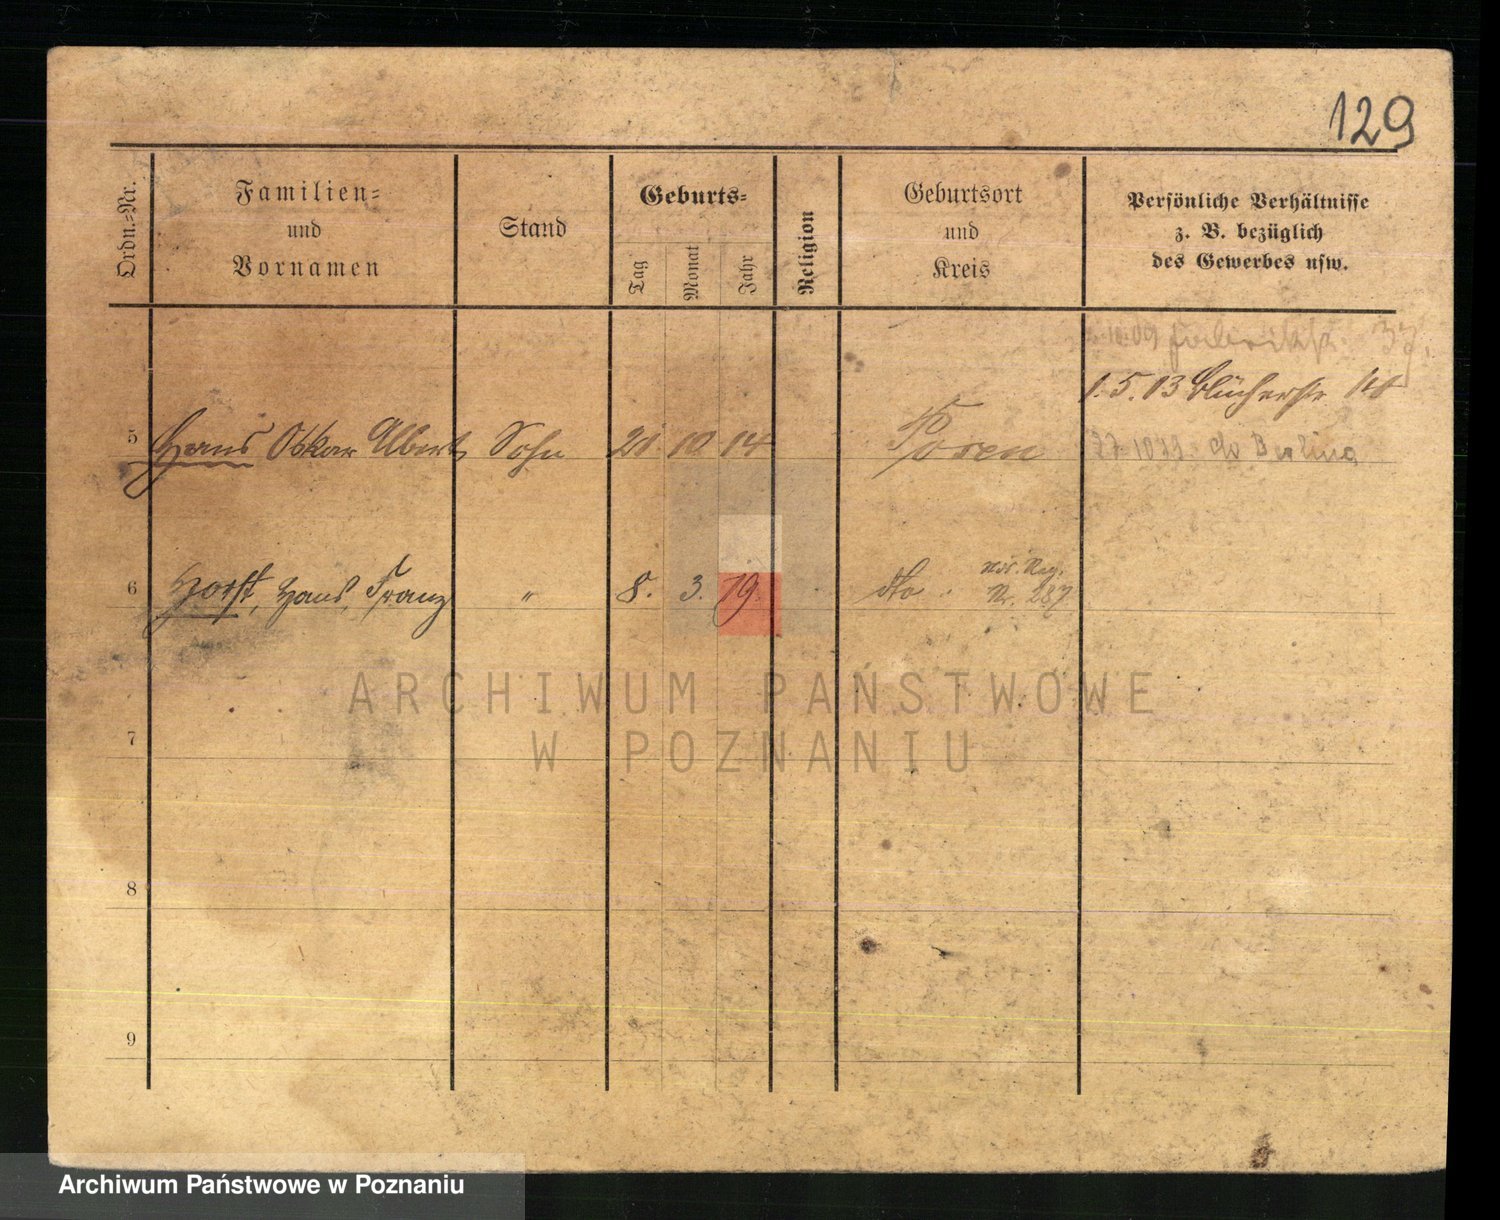 129
Ordn.-Nr.
Familien-
und
Vornamen
Stand
Geburts-
Tag
Monat
Jahr
Religion
Geburtsort
und
Kreis
Persönliche Verhältnisse
z. B. bezüglich
des Gewerbes usw.
1.5.13 Blücherstr
5 Hans Oskar Albert Sohn 21 10 14 Posen
6 Horst, Hans, Franz " 8. 3. 19. do
Nr. 287
7
8
9
ARCHIWUM PAŃSTWOWE
W POZNANIU
Archiwum Państwowe w Poznaniu